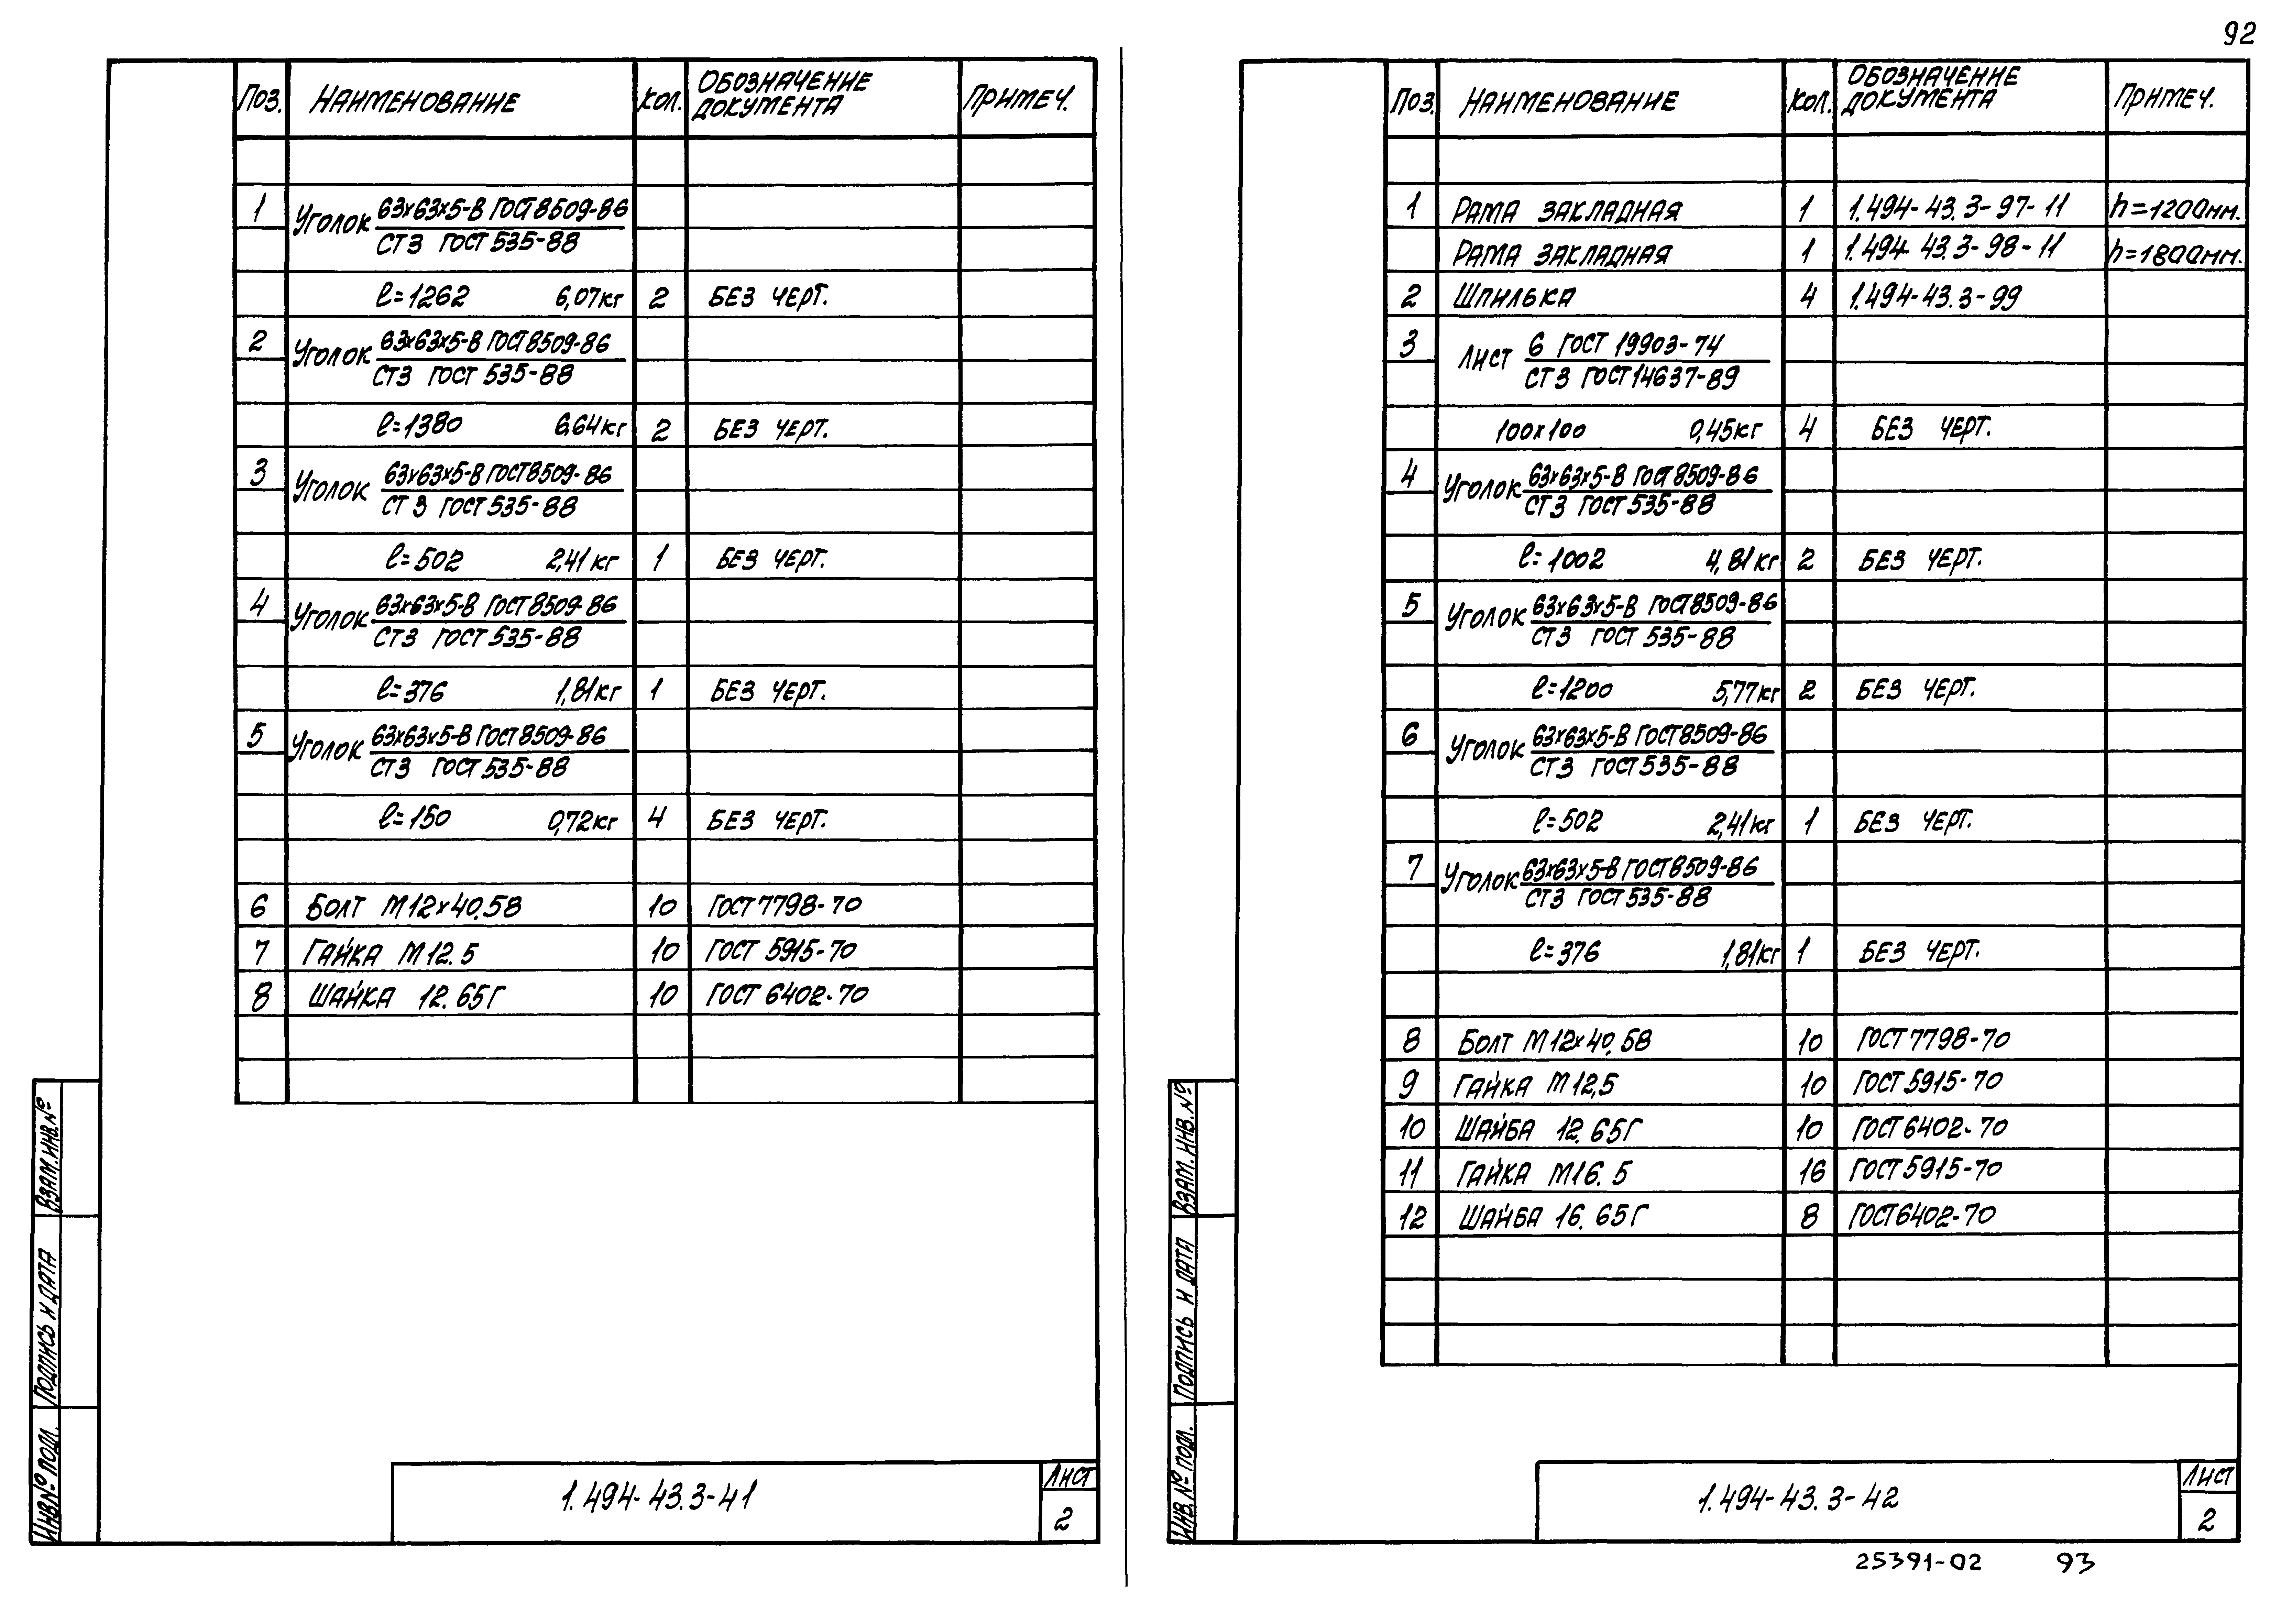 92
Поз. Наименование Кол. Обозначение документа Примеч.
1 Уголок 63х63х5-В ГОСТ 8509-86
Ст3 ГОСТ 535-88
ℓ=1262 6,07кг 2 Без черт.
2 Уголок 63х63х5-В ГОСТ 8509-86
Ст3 ГОСТ 535-88
ℓ=1380 6,64кг 2 Без черт.
3 Уголок 63х63х5-В ГОСТ 8509-86
Ст3 ГОСТ 535-88
ℓ=502 2,41кг 1 Без черт.
4 Уголок 63х63х5-В ГОСТ 8509-86
Ст3 ГОСТ 535-88
ℓ=376 1,81кг 1 Без черт.
5 Уголок 63х63х5-В ГОСТ 8509-86
Ст3 ГОСТ 535-88
ℓ=150 0,72кг 4 Без черт.
6 Болт М12х40.58 10 ГОСТ 7798-70
7 Гайка М12.5 10 ГОСТ 5915-70
8 Шайка 12.65Г 10 ГОСТ 6402-70
Взам.инв.№
Подпись и дата
Инв.№ подл.
1.494-43.3-41
Лист
2
Поз. Наименование Кол. Обозначение документа Примеч.
1 Рама закладная 1 1.494-43.3-97-11 h=1200мм.
Рама закладная 1 1.494-43.3-98-11 h=1800мм.
2 Шпилька 4 1.494-43.3-99
3 Лист 6 ГОСТ 19903-74
Ст3 ГОСТ 14637-89
100х100 0,45кг 4 Без черт.
4 Уголок 63х63х5-В ГОСТ 8509-86
Ст3 ГОСТ 535-88
ℓ=1002 4,81кг 2 Без черт.
5 Уголок 63х63х5-В ГОСТ 8509-86
Ст3 ГОСТ 535-88
ℓ=1200 5,77кг 2 Без черт.
6 Уголок 63х63х5-В ГОСТ 8509-86
Ст3 ГОСТ 535-88
ℓ=502 2,41кг 1 Без черт.
7 Уголок 63х63х5-В ГОСТ 8509-86
Ст3 ГОСТ 535-88
ℓ=376 1,81кг 1 Без черт.
8 Болт М12х40.58 10 ГОСТ 7798-70
9 Гайка М12,5 10 ГОСТ 5915-70
10 Шайба 12.65Г 10 ГОСТ 6402-70
11 Гайка М16.5 16 ГОСТ 5915-70
12 Шайба 16.65Г 8 ГОСТ 6402-70
Взам.инв.№
Подпись и дата
Инв.№ подл.
1.494-43.3-42
Лист
2
25391-02 93